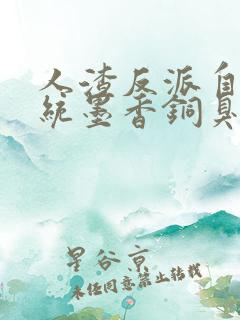 人渣反派自
統墨香銅臭
星谷京
未经同意禁止转载